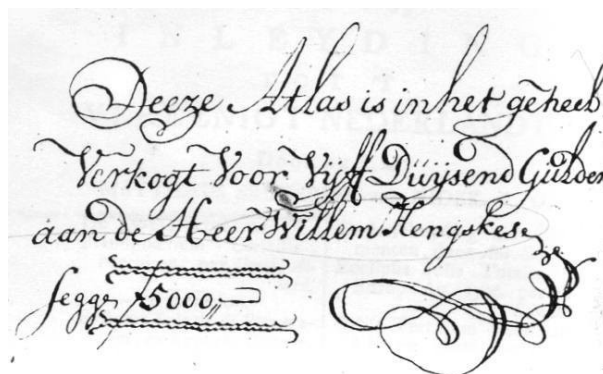 Deeze Atlas is in het geheel
Verkogt Voor Vijff Duijsend Gulden
aan de Heer Willem Hengskes.
segge 5000,,—